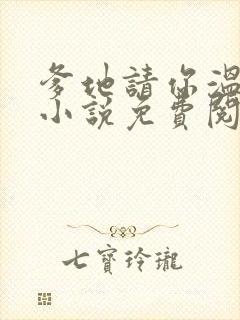 爹地請你溫
小說免費閱
七寶玲瓏